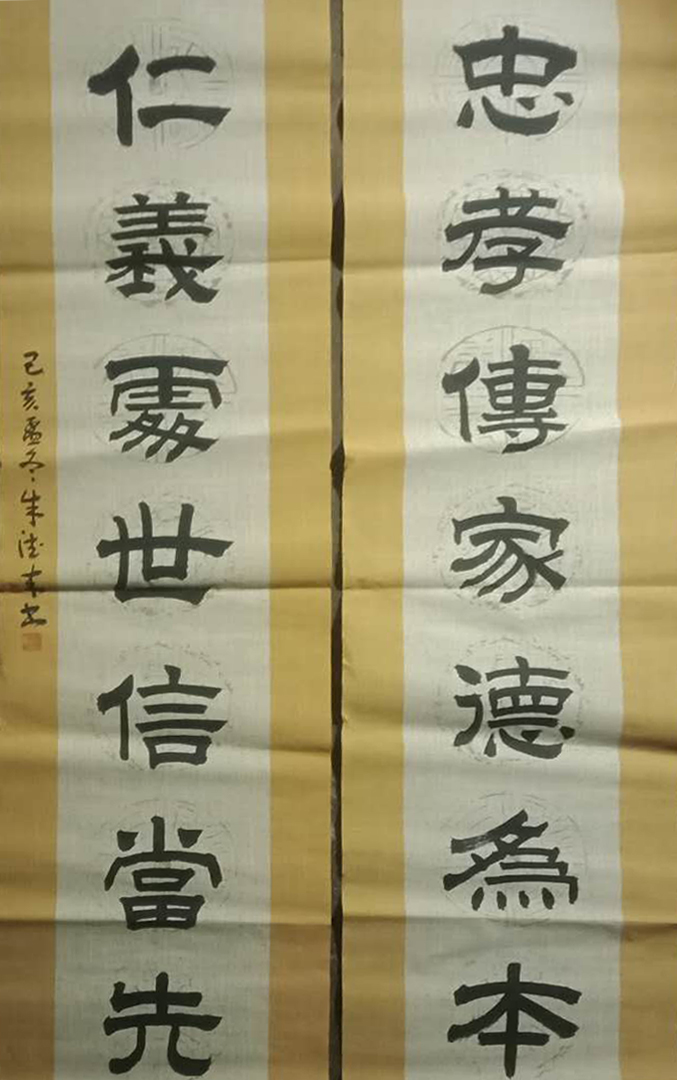 忠孝傳家德為本
仁義處世信當先
己亥孟冬朱德東書